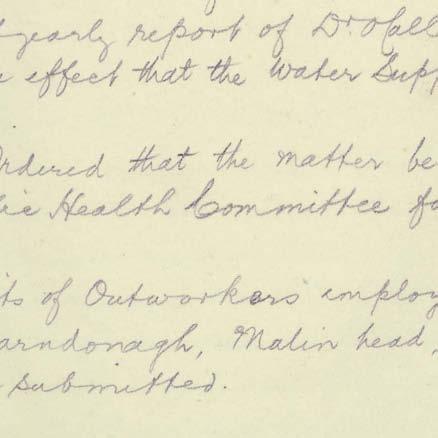 yearly report of Dr. O'Call
effect that the Water Supp
Ordered that the matter be
Health Committee fo
ts of Outworkers employ
arndonagh, Malin head,
submitted.